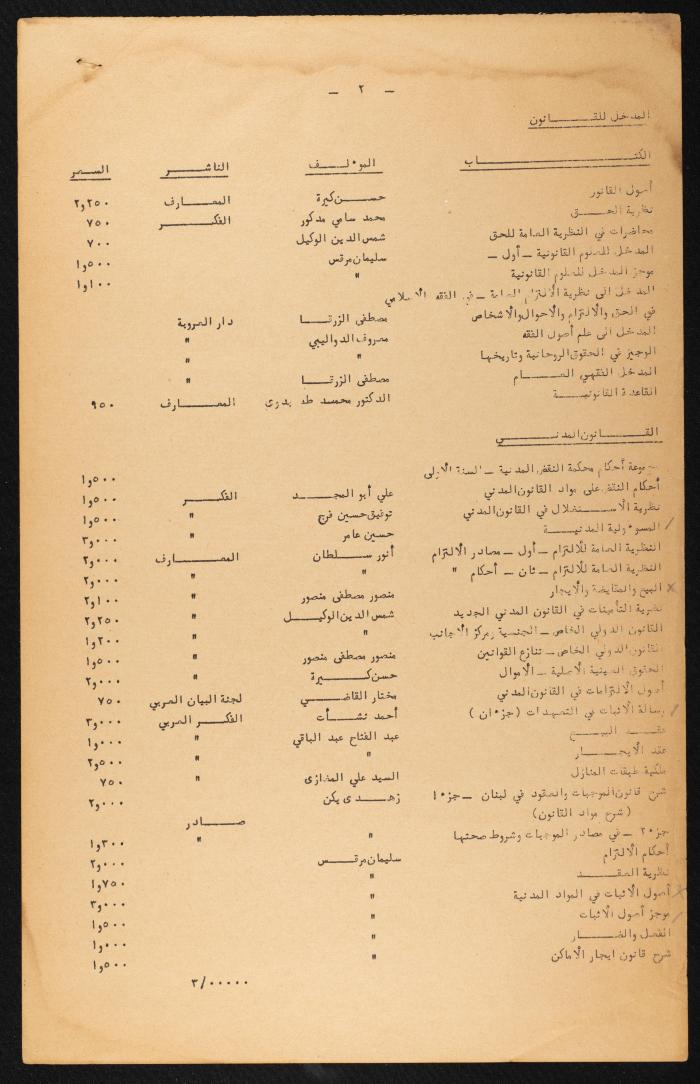 — ٢ —
المدخل للقـــانون
الكتـــاب المؤلـف الناشـــر السعـر
أصول القانون حســن كيرة المعــارف ٢٥٠و٢
نظرية الحــق محمد سامي مدكور الفكــر ٧٥٠
محاضرات في النظرية العامة للحق شمس الدين الوكيل ٧٠٠
المدخل للعلوم القانونية — أول — سليمان مرقس ٥٠٠و١
موجز المدخل للعلوم القانونية " ١٠٠و١
المدخل الى نظرية الالتزام العامة — في الفقه الاسلامي
في الحق والالتزام والاحوال والاشخاص مصطفى الزرقــا دار العروبة
المدخل الى علم أصول الفقه معروف الدواليبي "
الوجيز في الحقوق الرومانية وتاريخها " "
المدخل الفقهي العــام مصطفى الزرقــا "
القاعدة القانونيــة الدكتور محمد طه بدوي المعــارف ٩٥٠
القـــانون المدنـــي
مجموعة أحكام محكمة النقض المدنية — السنة الاولى ٥٠٠و١
أحكام النقض على مواد القانون المدني علي أبو المجــد الفكــر ٥٠٠و١
نظرية الاســتغلال في القانون المدني توفيق حسين فرج " ٥٠٠و١
المسوءولية المدنيــة حسين عامر " ٠٠٠و٣
النظرية العامة للالتزام — أول — مصادر الالتزام أنور ســلطان المعــارف ٠٠٠و٢
النظرية العامة للالتزام — ثان — أحكام " " " ٠٠٠و٢
البيع والمقايضة والايجار منصور مصطفى منصور " ١٠٠و٢
نظرية التأمينات في القانون المدني الجديد شمس الدين الوكيــل " ٢٥٠و٢
القانون الدولي الخاص — الجنسية ومركز الاجانب " " ٢٠٠و١
القانون الدولي الخاص — تنازع القوانين منصور مصطفى منصور " ٥٠٠و١
الحقوق العينية الاصلية — الاموال حسن كـــيرة " ٠٠٠و٢
أصول الالتزامات في القانون المدني مختار القاضــي لجنة البيان العربي ٧٥٠
رسالة الاثبات في التعهدات (جزءان ) أحمد نشــأت الفكــر العربي ٠٠٠و٣
عقــد البيــع عبد الفتاح عبد الباقي " ٠٠٠و١
عقد الايجــار " " ٥٠٠و٢
ملكية طبقات المنازل السيد علي المغازى " ٧٥٠
شرح قانون الموجبات والعقود في لبنان — جزء ١ زهــدى يكن ٠٠٠و٢
(شرح مواد القانون) صـــادر
جزء ٢ — في مصادر الموجبات وشروط صحتها " " ٣٠٠و١
أحكام الالتزام سليمان مرقــس ٠٠٠و٢
نظرية العقــد " ٧٥٠و١
أصول الاثبات في المواد المدنية " ٠٠٠و٣
موجز أصول الاثبات " ٥٠٠و١
الفعل والضــار " ٠٠٠و١
شرح قانون ايجار الاماكن " ٥٠٠و١
٣/٠٠٠٠٠